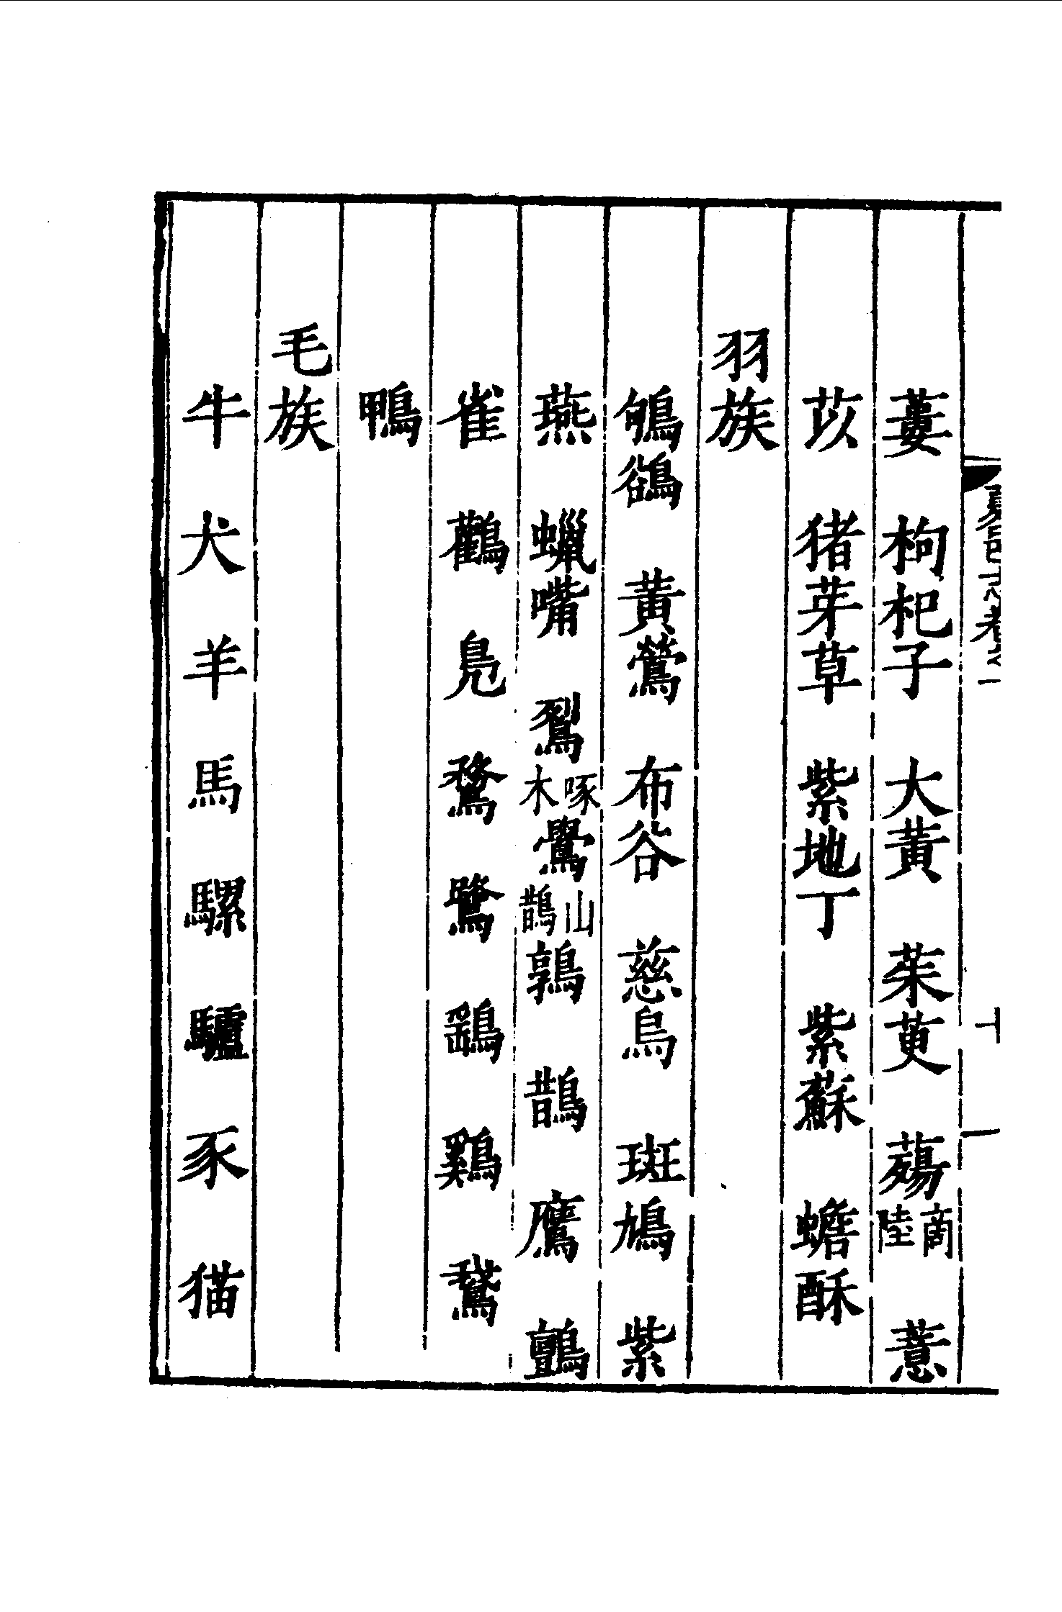 夏邑志卷之一 十一
蔞 枸杞子 大黃 茱萸 薚商陸 薏
苡 猪芽草 紫地丁 紫蘇 蟾酥
羽族
鴝鵒 黃鶯 布谷 慈烏 斑鳩 紫
燕 蠟嘴 鴷啄木 鷽山鵲 鶉 鵲 鷹 鸇
雀 鸛 鳧 鶩 鷺 鷂 鷄 鵞
鴨
毛族
牛 犬 羊 馬 騾 驢 豕 猫